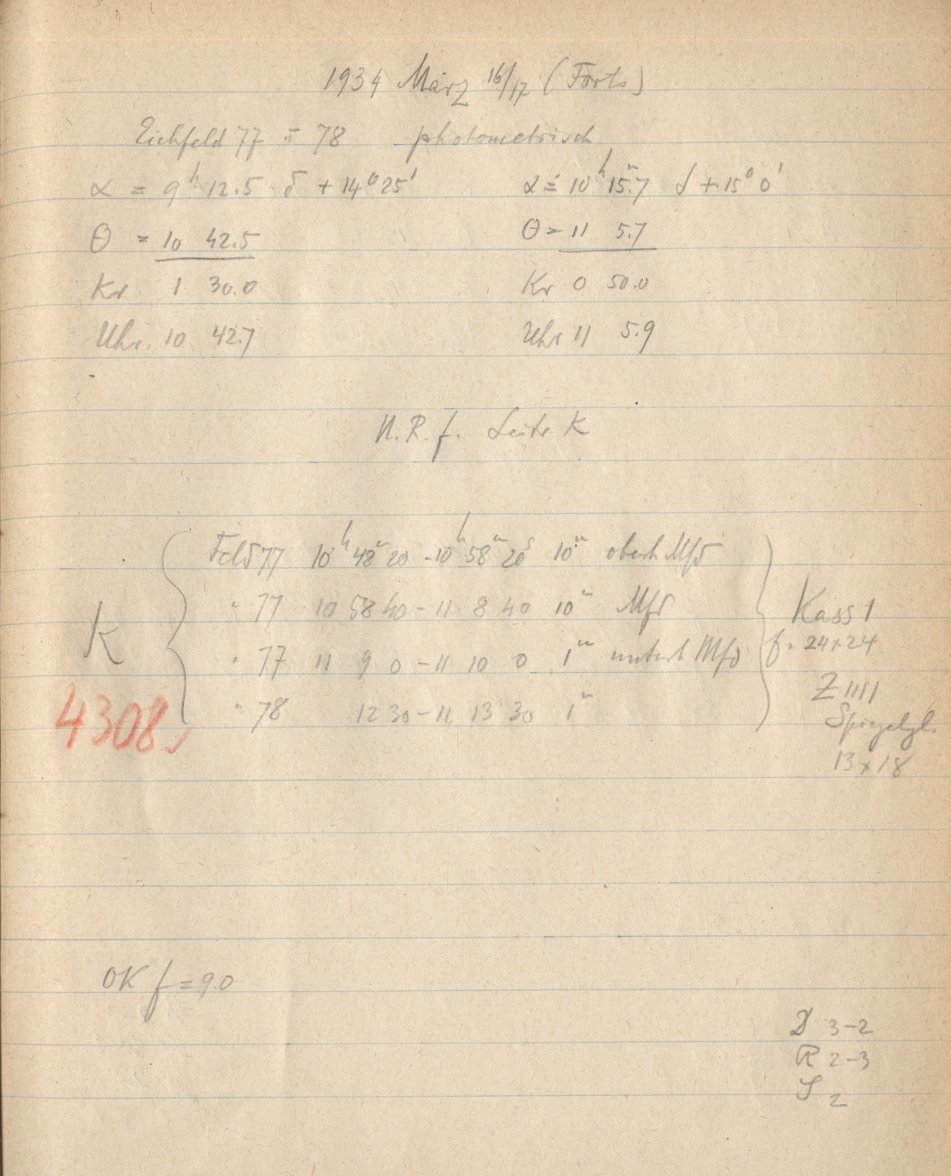 1934 März 16/17 (Forts)
Eichfeld 77 = 78 photometrisch
α = 9ʰ 12.5 δ + 14° 25' α = 10ʰ 15ᵐ.7 δ + 15° 0'
θ = 10 42.5 θ = 11 5.7
Kr 1 30.0 Kr 0 50.0
Uhr. 10 42.7 Uhr 11 5.9
N.R.f. Seite K
Feld 77 10ʰ 48ᵐ 20 - 10ʰ 58ᵐ 20ˢ 10ᵐ oberh Mfd
" 77 10 58 40 - 11 8 40 10ᵐ Mfd
" 77 11 9 0 - 11 10 0 1ᵐ unterh Mfd
" 78 12 30 - 11 13 30 1ᵐ
K
4308
Kass 1
f. 24x24
Z 1111
Spiegelgl.
13x18
OK f = 90
D 3-2
R 2-3
S 2